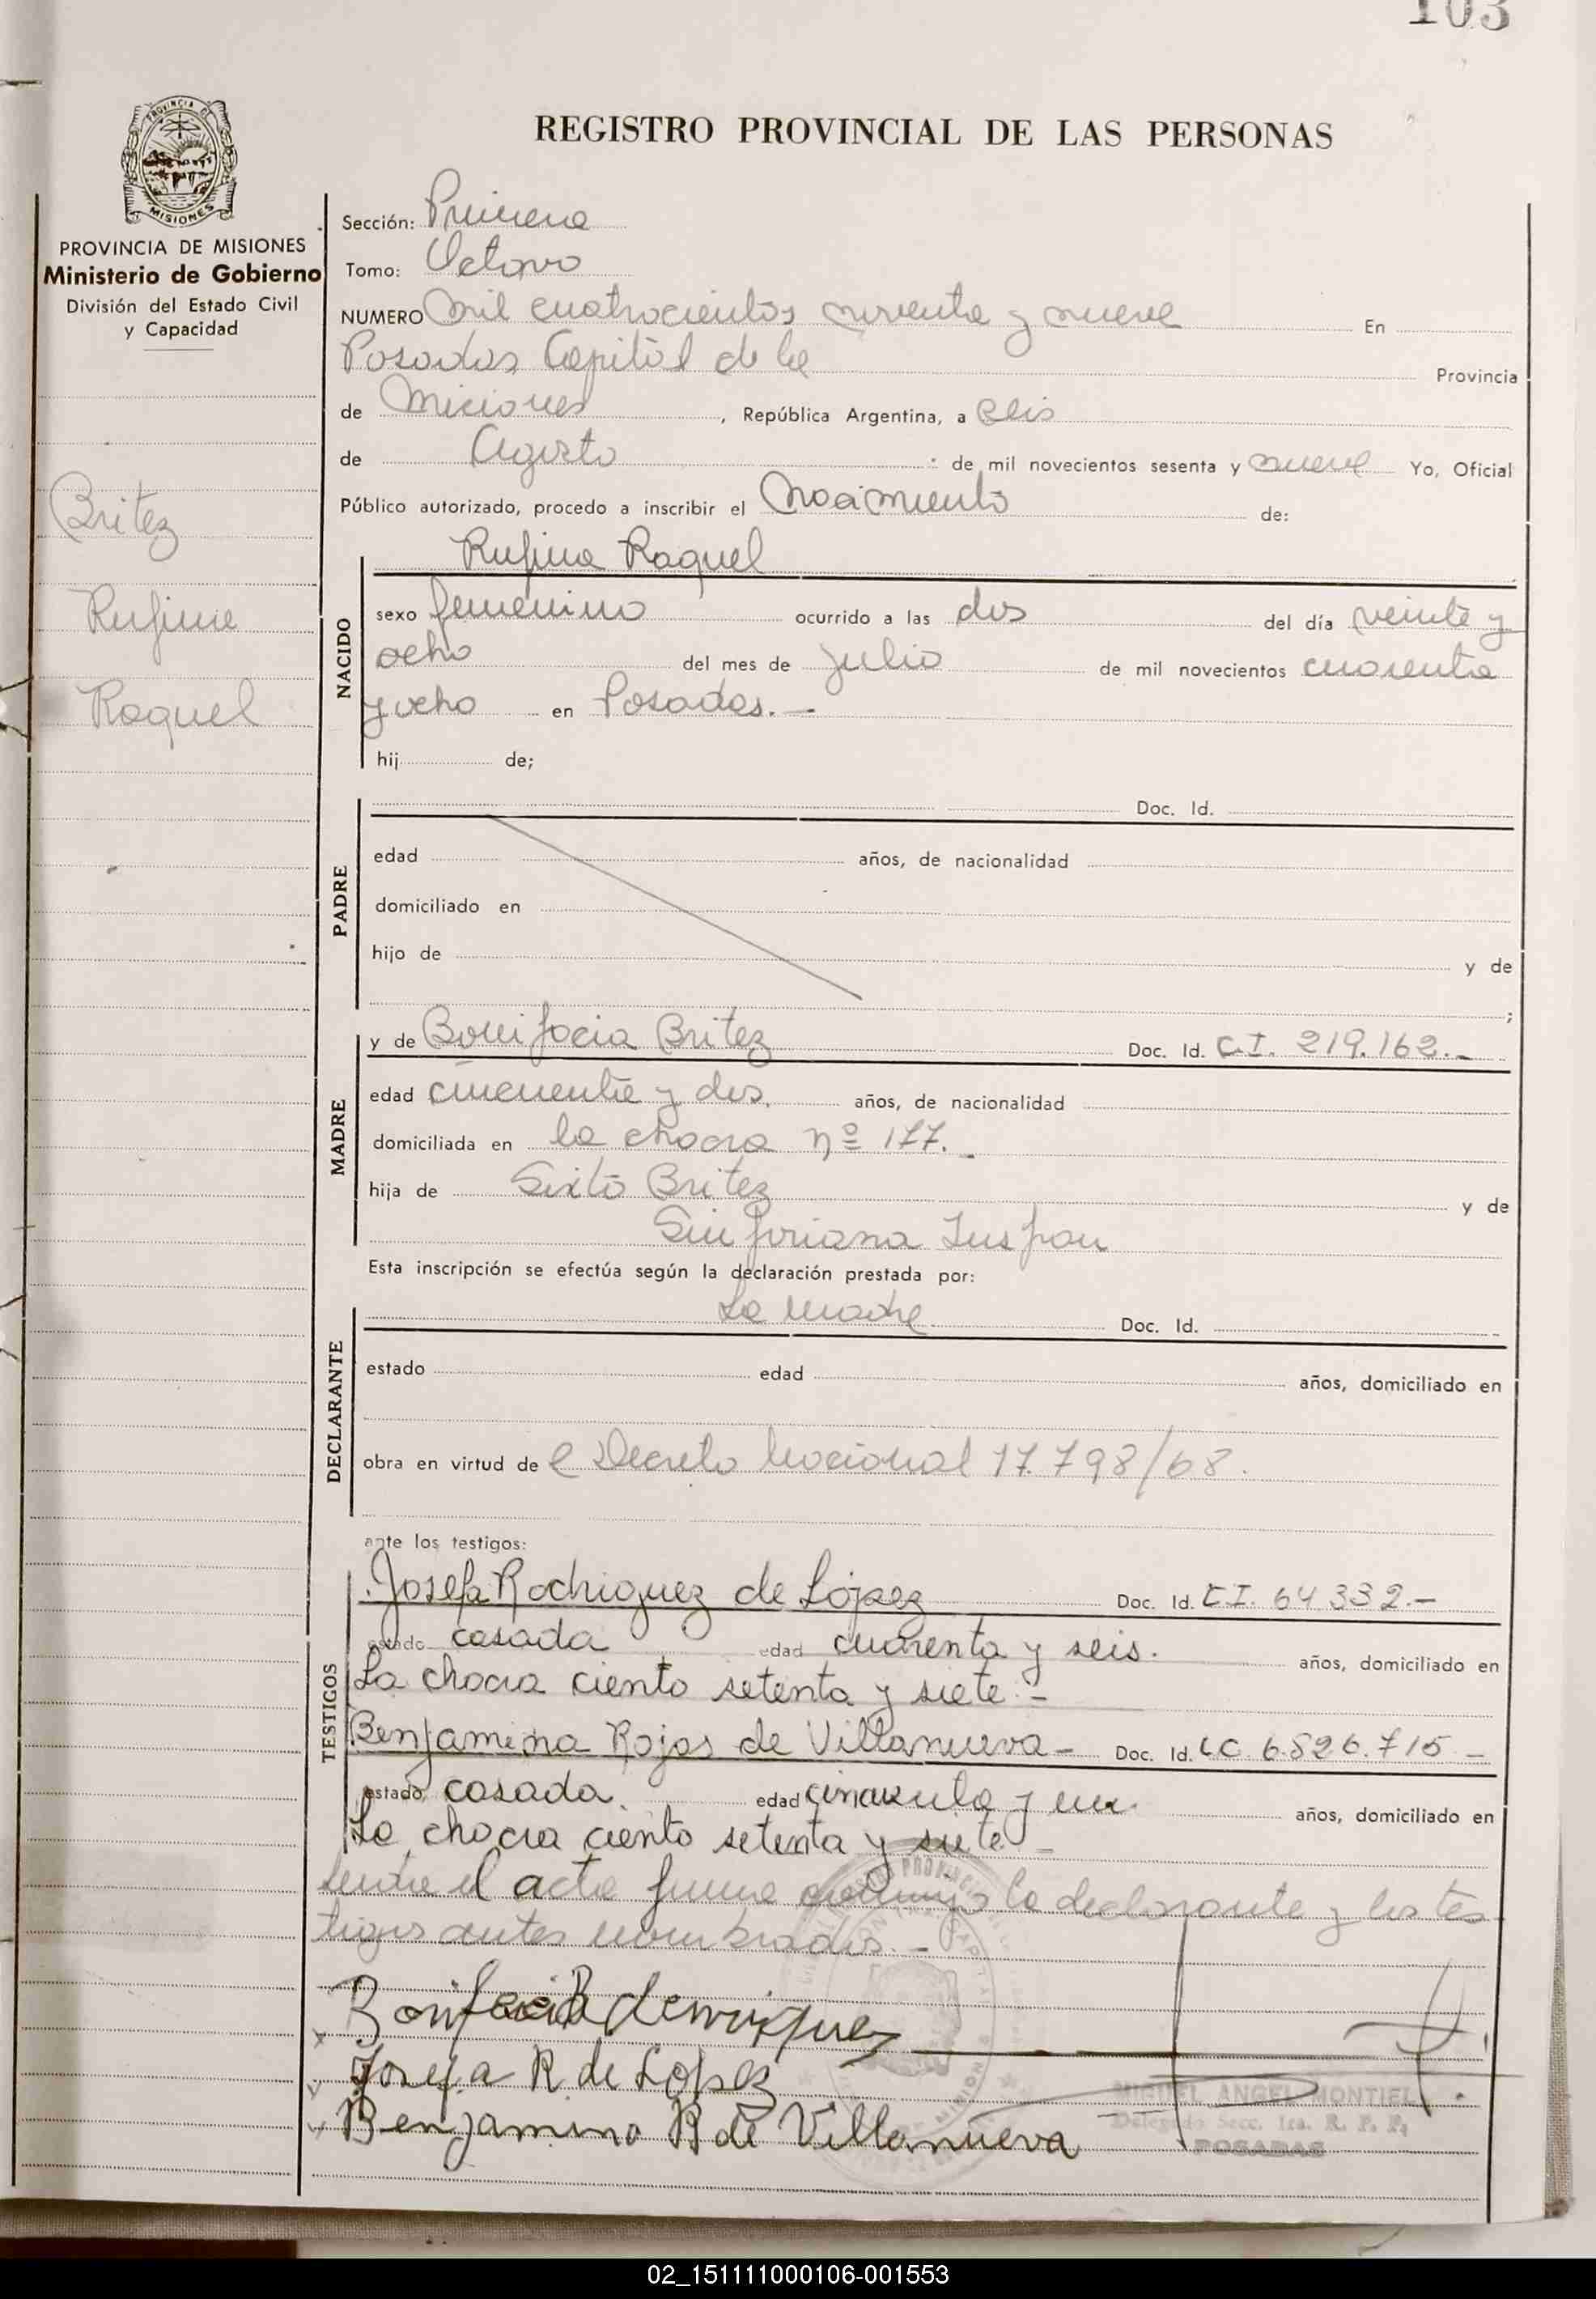 103
REGISTRO PROVINCIAL DE LAS PERSONAS
PROVINCIA DE MISIONES
Ministerio de Gobierno
División del Estado Civil
y Capacidad
Britez
Rufina
Raquel
Sección: Primera
Tomo: Octavo
NUMERO Mil cuatrocientos noventa y nueve En
Posadas Capital de la Provincia
de Miciones, República Argentina, a seis
de Agosto de mil novecientos sesenta y nueve Yo, Oficial
Público autorizado, procedo a inscribir el Nacimiento de:
NACIDO
Rufina Raquel
sexo femenino ocurrido a las dos del día veinte y
ocho del mes de julio de mil novecientos cuarenta
y ocho en Posadas.—
hij de;
PADRE
Doc. Id.
edad años, de nacionalidad
domiciliado en
hijo de y de
;
MADRE
y de Bonifacia Britez Doc. Id. C.I. 219.162.—
edad cincuenta y dos. años, de nacionalidad
domiciliada en la chacra nº 177.—
hija de Sixto Britez y de
Sinforiana
Esta inscripción se efectúa según la declaración prestada por:
DECLARANTE
La madre Doc. Id.
estado edad años, domiciliado en
obra en virtud de Decreto Nacional 17.798/68.
ante los testigos:
TESTIGOS
Josefa Rodriguez de López Doc. Id. C.I. 64332.—
estado casada edad cuarenta y seis. años, domiciliado en
La chacra ciento setenta y siete.—
Benjamina Rojas de Villanueva— Doc. Id. LC 6.826.715—
estado casada. edad cincuenta y un. años, domiciliado en
La chacra ciento setenta y siete—
el acta firma la declarante y los tes
tigos antes nombrados.—
Bonifacia B de
Josefa R de Lopez
Benjamina R de Villanueva
MIGUEL ANGEL MONTIEL
Delegado Secc. 1ra. R. P. P.
POSADAS
02_151111000106-001553